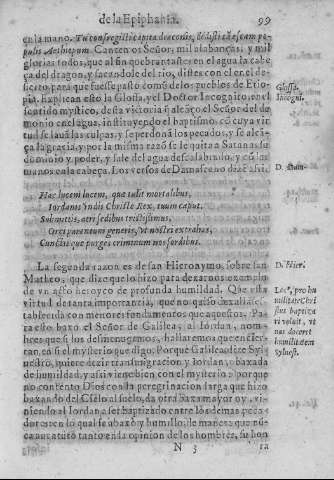 de la Epiphania. 99
en la mano. Tu confregisti capita draconis, dedisti eũ escam po-
pulis Aethiopum. Canten os Señor, mil alabanças, y mil
glorias todos, que al fin quebrantastes en el agua la cabe
ça del dragon, y sacandole del rio, distes con el en el de-
sierto, para que fuesse pasto como de los pueblos de Etio-
pia. Explican esto la Glossa, y el Doctor Incognito, en
sentido mystico, desta victoria q̃ alcãço el Señor del de
monio en el agua, instituyendo el baptismo, cõ cuya vir-
tud se lauã las culpas, y se perdonã los pecados, y se alcã-
ça la gracia, y por la misma razõ se le quita a Satanas su
dominio y poder, y sale del agua descalabrado, y cõ las
manos en la cabeça. Los versos de Damasceno dizẽ assi.
Glossa.
Incogni.
D. Dam.
Hac lucem lucem, que tulit mortalibus,
Iordanis vndis Christe Rex, tuum caput,
Submittis, atri sedibus tristissimus,
Orci parentum generis, vt nostri extrahas,
Cunctis que purges criminum nos sordibus.
La segunda razon es de san Hieronymo, sobre san
Matheo, que dize que lo hizo para dexarnos exemplo
de vn acto heroyco de profunda humildad. Que esta
virtud es de tanta importancia, que no quiso dexalla es-
tablecida con menores fundamentos que aquestos. Pa
ra esto baxò el Señor de Galilea, al Iordan, nom-
bres que si los desmenuçemos, hallaremos que encier-
ran, en si el mysterio que digo. Porque Galilea dize Syl
uestro, quiere dezir transmigracion y Iordan, baxada
de humildad, y assi viene bien con el mysterio: porque
no contento Dios con la peregrinacion larga que hizo
baxando del Cielo al suelo, da otra baxa mayor oy, vi-
niendo al Iordan a ser baptizado entre los demas peca-
dores con lo qual se abaxò y humillo, de manera que nũ-
ca auentutò tanto en la opinion de los hombres, su hon
D. Hier.
pro hu
militate Chri
stus baptiza
ri voluit, vt
nos doceret
humilitatem
N 3 ra